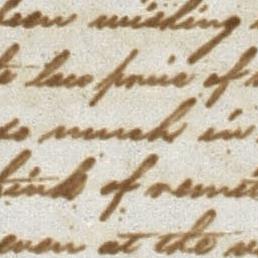 been wishing
low price of
so much in
think of remit
even at the